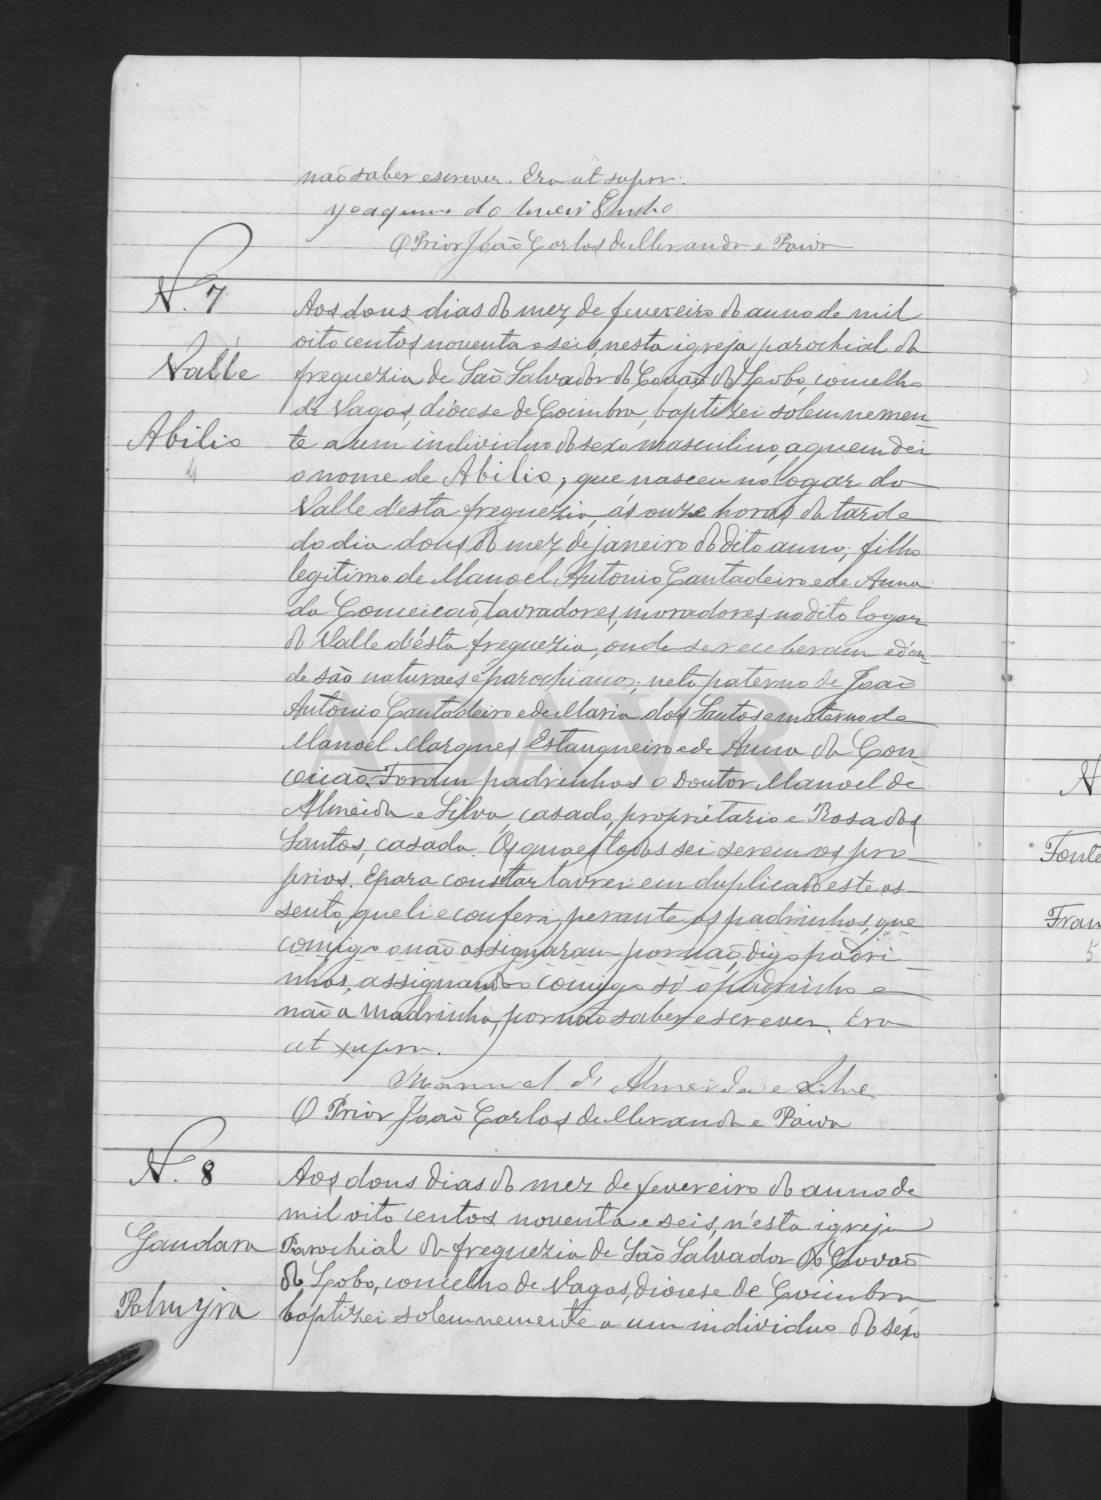 não saber escrever. Era ut supra.
Joaquim do
O Prior João Carlos de Miranda e Paiva
N. 7
Valle
Abilio
4
Aos dous dias do mez de fevereiro do anno de mil
oito centos noventa e seis, nesta igreja parochial da
freguezia de São Salvador do Covão do Lobo, concelho
de Vagos, diocese de Coimbra, baptizei solemnemen-
te a um individuo do sexo masculino, a quem dei
o nome de Abilio, que nasceu no logar do
Valle d'esta freguezia, ás onze horas da tarde
do dia dous do mez de janeiro do dito anno; filho
legitimo de Manoel Antonio Cantadeiro e de Anna
da Conceicão, lavradores, moradores no dito logar
do Valle d'ésta freguezia, onde se receberam e d'on-
de são naturaes e parochianos; neto paterno de João
Antonio Cantadeiro e de Maria dos Santos e materno de
Manoel Marques Estanqueiro e de Anna da Con-
ceicão. Foram padrinhos o Doutor Manoel de
Almeida e Silva, casado, proprietario e Rosa dos
Santos, casada. Os quaes todos sei serem os pro-
prios. E para constar lavrei em duplicado este as-
sento, que li e conferi, perante os padrinhos, que
comigo o não assignaram por não, digo padri-
nhos, assignando comigo só o padrinho e
não a madrinha, por não saber escrever. Era
ut supra.
Manuel d' Almeida e Silva
O Prior João Carlos de Miranda e Paiva
N. 8
Gandara
Palmyra
Aos dous dias do mez de fevereiro do anno de
mil oito centos noventa e seis, n'esta igreja
Parochial da freguezia de São Salvador do Covão
do Lobo, concelho de Vagos, diocese de Coimbra
baptizei solemnemente a um individuo do sexo
N
Fonte
Fran
5
ADAVR